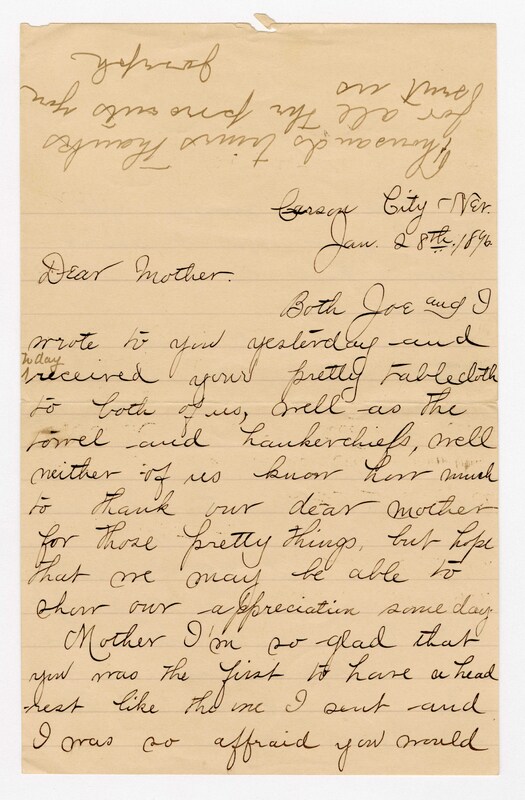 Thousands times thanks
for all the presents you
sent us
Joseph
Carson City - Nev.
Jan. 28th, 1896
Dear Mother.
Both Joe and I
wrote to you yesterday and
today
received your pretty tablecloth
to both of us, well as the
towel and hankerchiefs, well
neither of us know how much
to thank our dear mother
for those pretty things, but hope
that we may be able to
show our appreciation some day.
Mother I'm so glad that
you was the first to have a head
rest like the one I sent and
I was so affraid you would